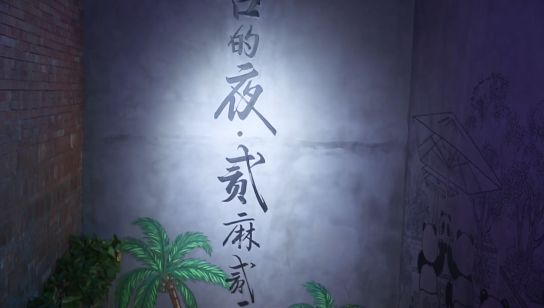 的夜·贰麻贰